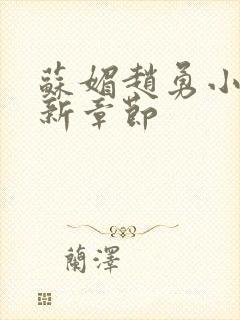 蘇媚趙勇小
新章節
蘭澤